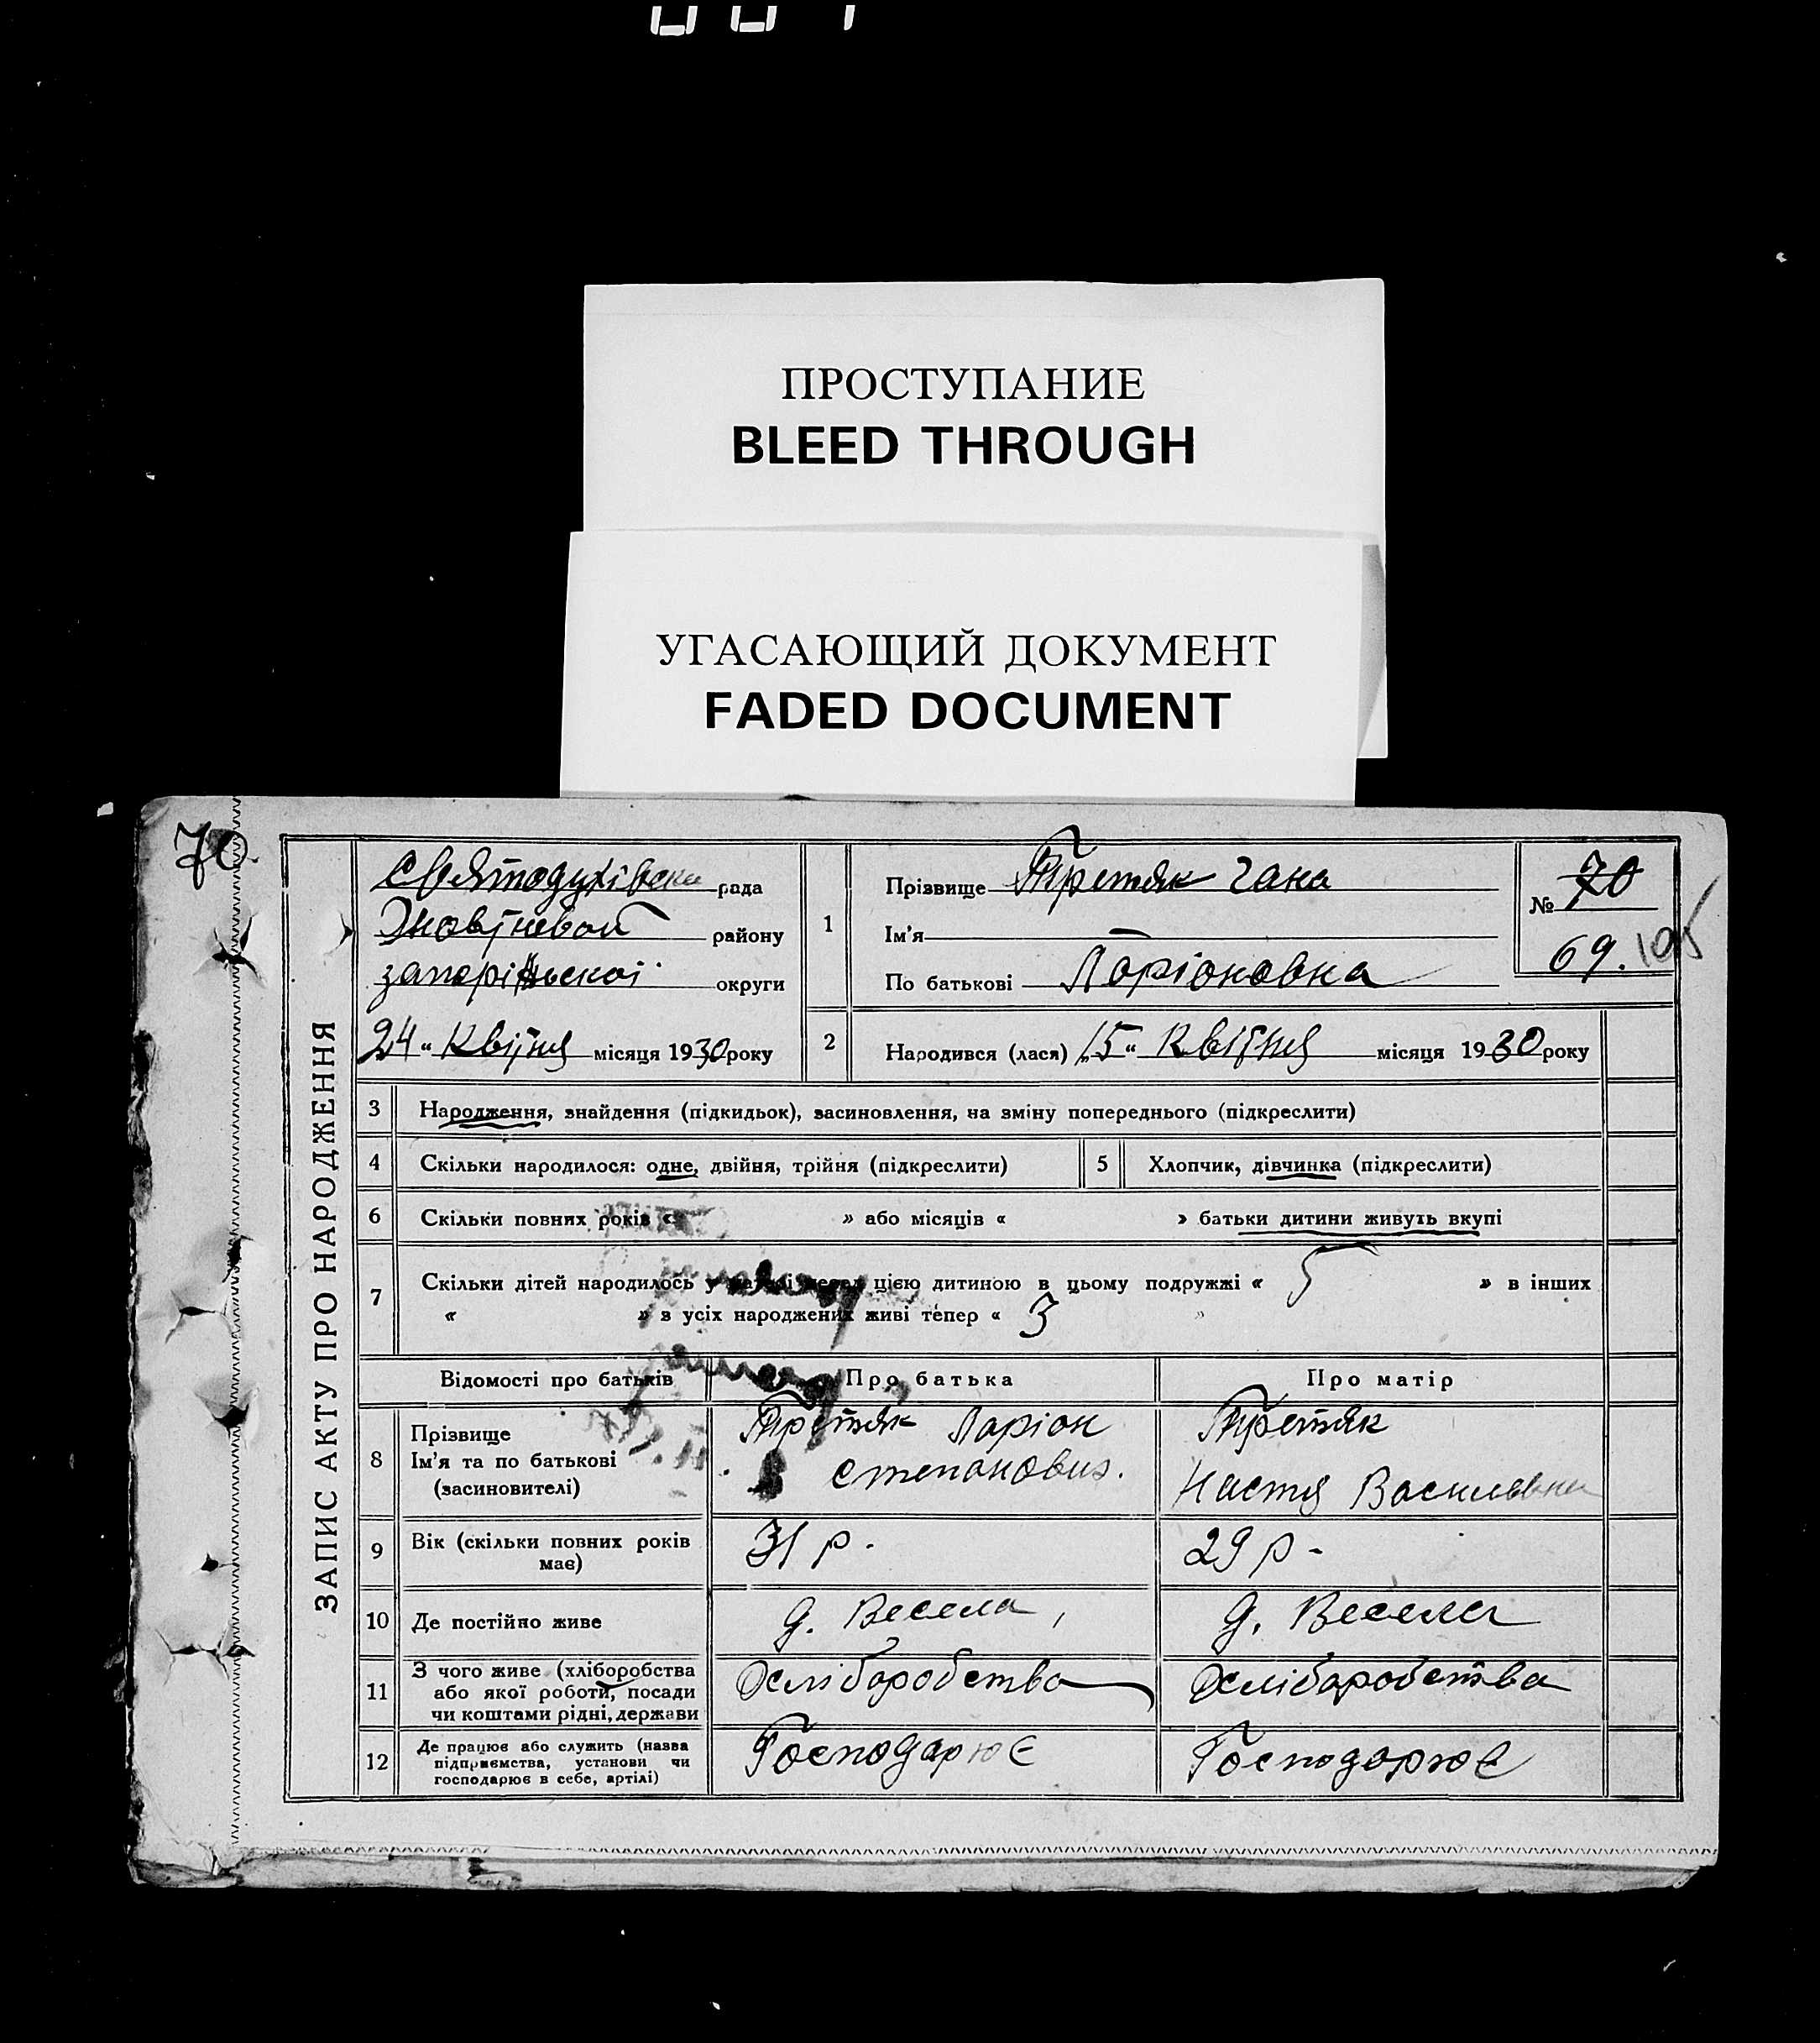 ПРОСТУПАНИЕ
BLEED THROUGH
УГАСАЮЩИЙ ДОКУМЕНТ
FADED DOCUMENT
70.
ЗАПИС АКТУ ПРО НАРОДЖЕННЯ
Святодухівська рада
Жовтневой району
запорізьскоі округи
24 " Квітня місяця 1930 року
1
Прізвище Третяк Гана
Ім'я
По батькові Ларіоновна
№ 70
69. 105
2
Народився (лася) „15 " Квітня місяця 1930 року
3 Народження, знайдення (підкидьок), засиновлення, на зміну попереднього (підкреслити)
4 Скільки народилося: одне, двійня, трійня (підкреслити)
5 Хлопчик, дівчинка (підкреслити)
6 Скільки повних років « » або місяців « » батьки дитини живуть вкупі
7 Скільки дітей народилось у матері перед цією дитиною в цьому подружжі « 5 » в інших
« » з усіх народжених живі тепер « 3 »
Відомості про батьків Про батька Про матір
8 Прізвище
Ім'я та по батькові
(засиновителі)
Третяк Ларіон
Степанович.
Третяк
Настя Василевна
9 Вік (скільки повних років
має)
31 р. 29 р-
10 Де постійно живе д. Весела, д. Весела
11 З чого живе (хліборобства
або якої роботи, посади
чи коштами рідні, держави
Хліборобства Хліборобства
12 Де працює або служить (назва
підприємства, установи чи
господарює в себе, артілі)
Господарює Господорює